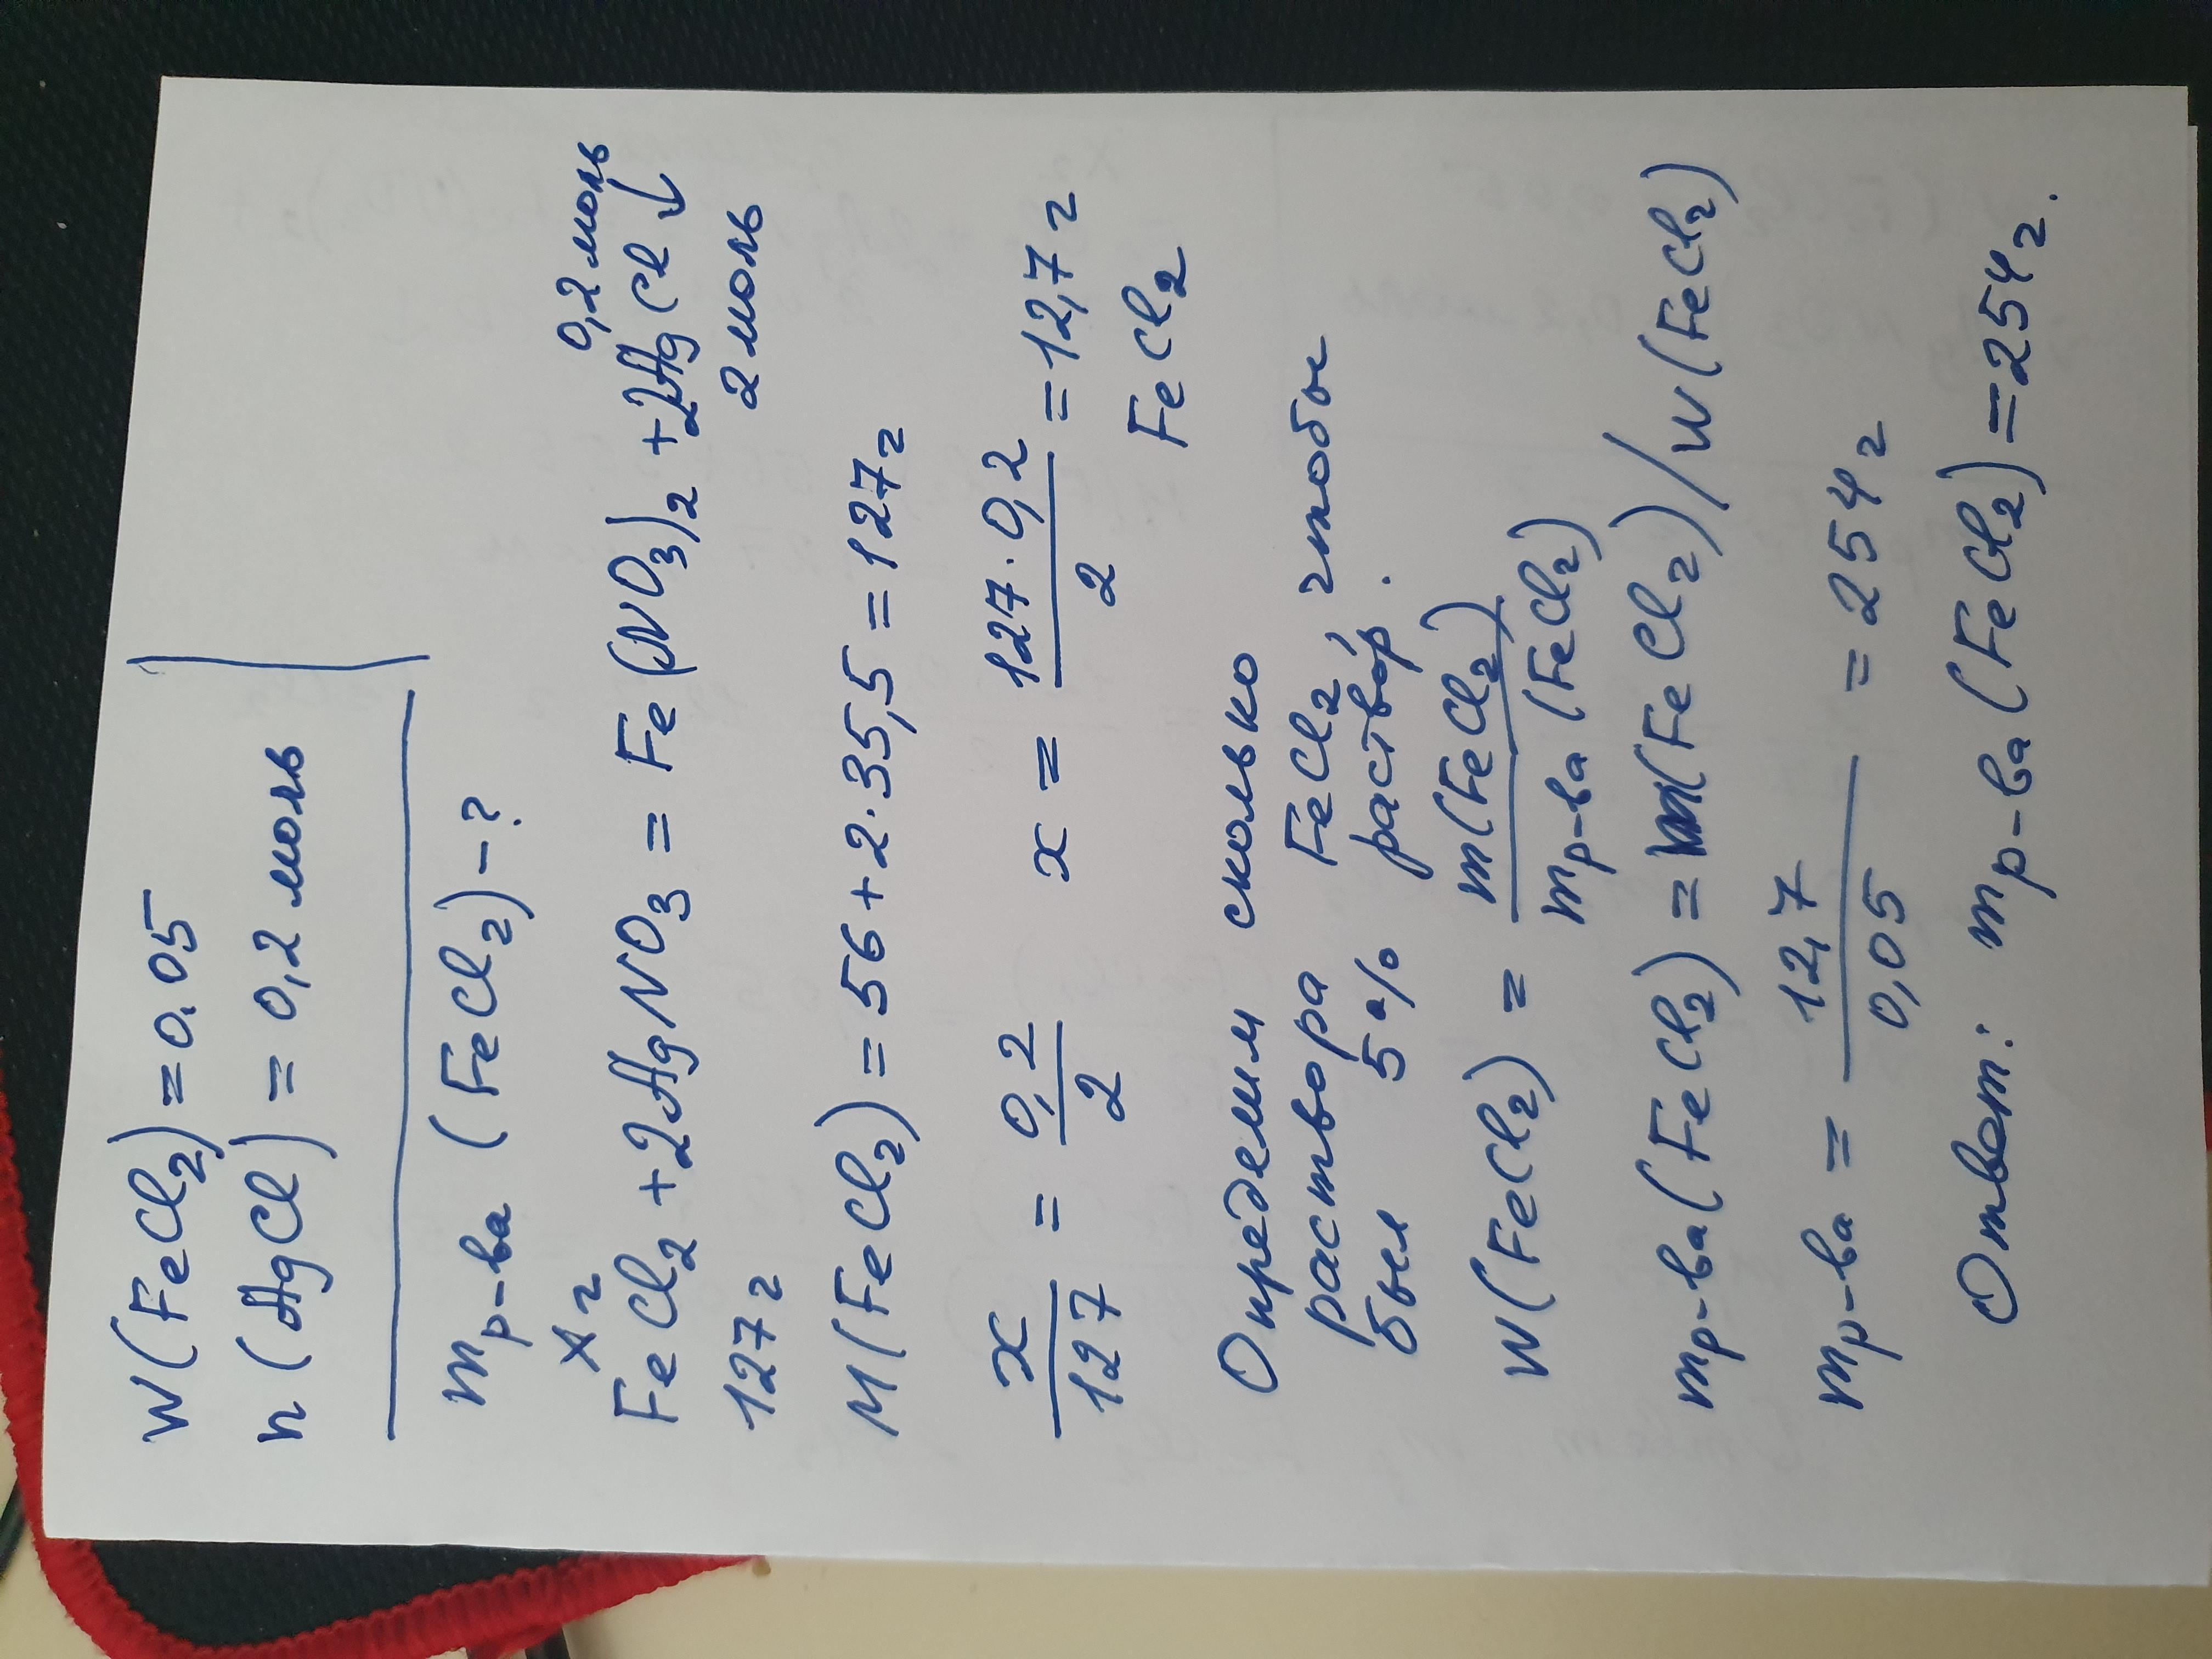 W(FeCl₂)=0.05
n(AgCl)=0,2 моль
mр-ва (FeCl₂)-?
х г 0,2 моль
FeCl₂+2AgNO₃=Fe(NO₃)₂+2AgCl↓
127 г 2 моль
M(FeCl₂)=56+2·35,5=127 г
x/127 = 0,2/2 x = 127·0,2/2 =12,7 г
FeCl₂
Определим сколько
раствора FeCl₂, чтобы
был 5% раствор.
W(FeCl₂) = m(FeCl₂)/mр-ва (FeCl₂)
mр-ва(FeCl₂)=m(FeCl₂)/W(FeCl₂)
mр-ва = 12,7/0,05 = 254 г
Ответ: mр-ва(FeCl₂)=254 г.